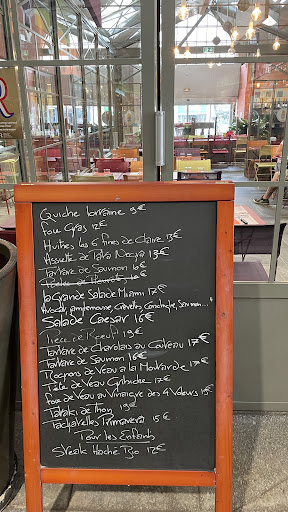 R
Quiche lorraine 9€
foie Gras 12€
Huitres les 6 fines de claire 13€
Assiette de Pata Negra 13€
Tartare de Saumon 16€
La Grande Salade Miami 17€
Avocat, pamplemousse, Crevettes, Concombre, Saumon..."
Salade Caesar 16€
Pièce de Boeuf 19€
Tartare de Charolais au Couteau 17€
Tartare de Saumon 16€
Rognons de Veau a la Moutarde 17€
Tête de Veau Gribiche 17€
foie de Veau au Vinaigre des 4 Voleurs 19€
Tataki de Thon 19€
Pappardelles Primavera 15€
Pour les Enfants
Steak Haché Bio 12€